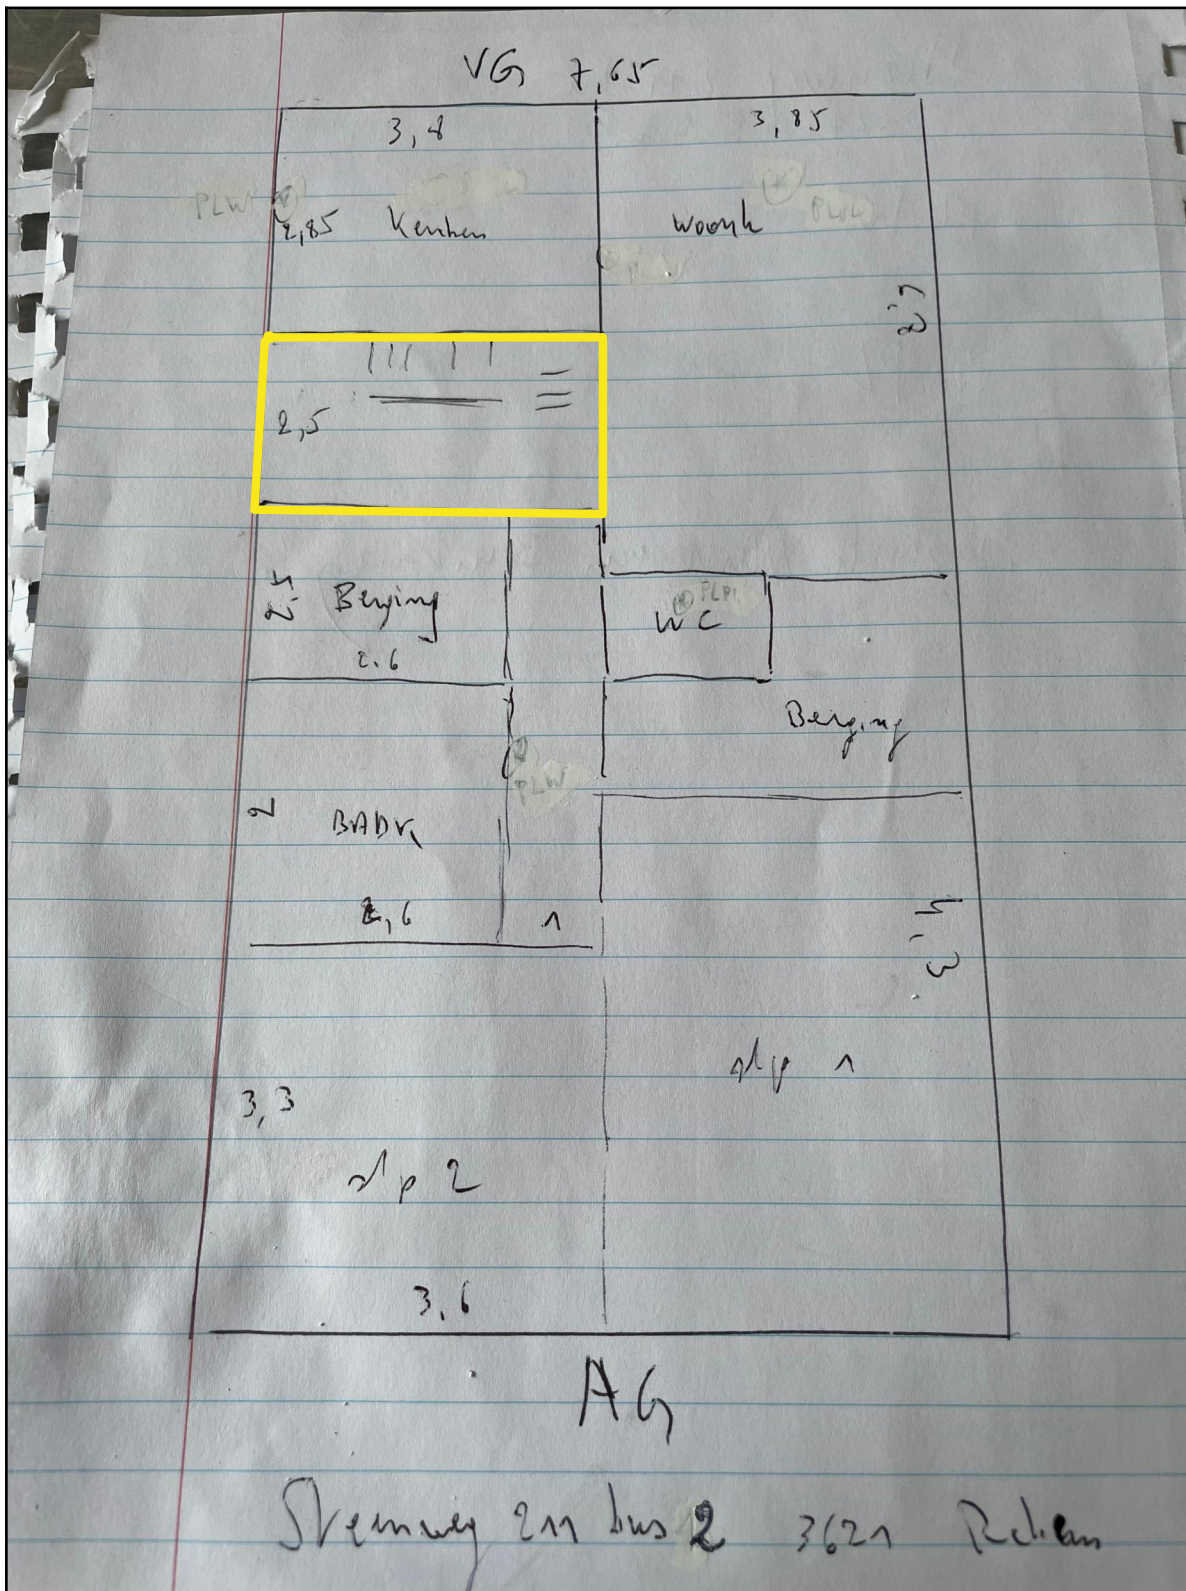 VG 7,65
3,8
3,85
PLW
2,85 Keuken
Woonk
PLW
2,5
2,4 Berging
2.6
WC
Berging
PLW
2
BADK
2,6
1
4,3
slp 1
3,3
slp 2
3,6
AG
Steenweg 211 bus 2 3621 Rekem